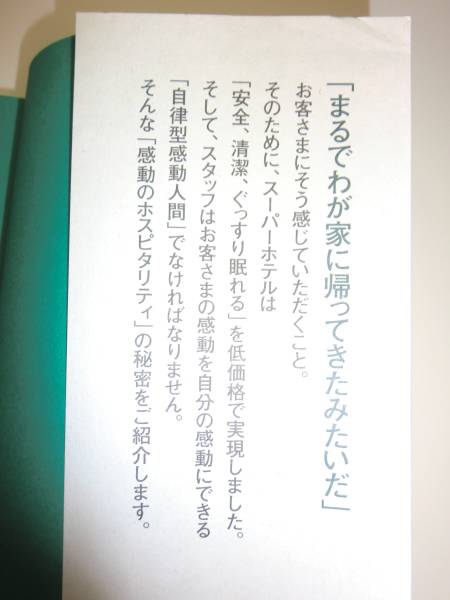 「まるでわが家に帰ってきたみたいだ」
お客さまにそう感じていただくこと。
そのために、スーパーホテルは
「安全、清潔、ぐっすり眠れる」を低価格で実現しました。
そして、スタッフはお客さまの感動を自分の感動にできる
「自律型感動人間」でなければなりません。
そんな「感動のホスピタリティ」の秘密をご紹介します。